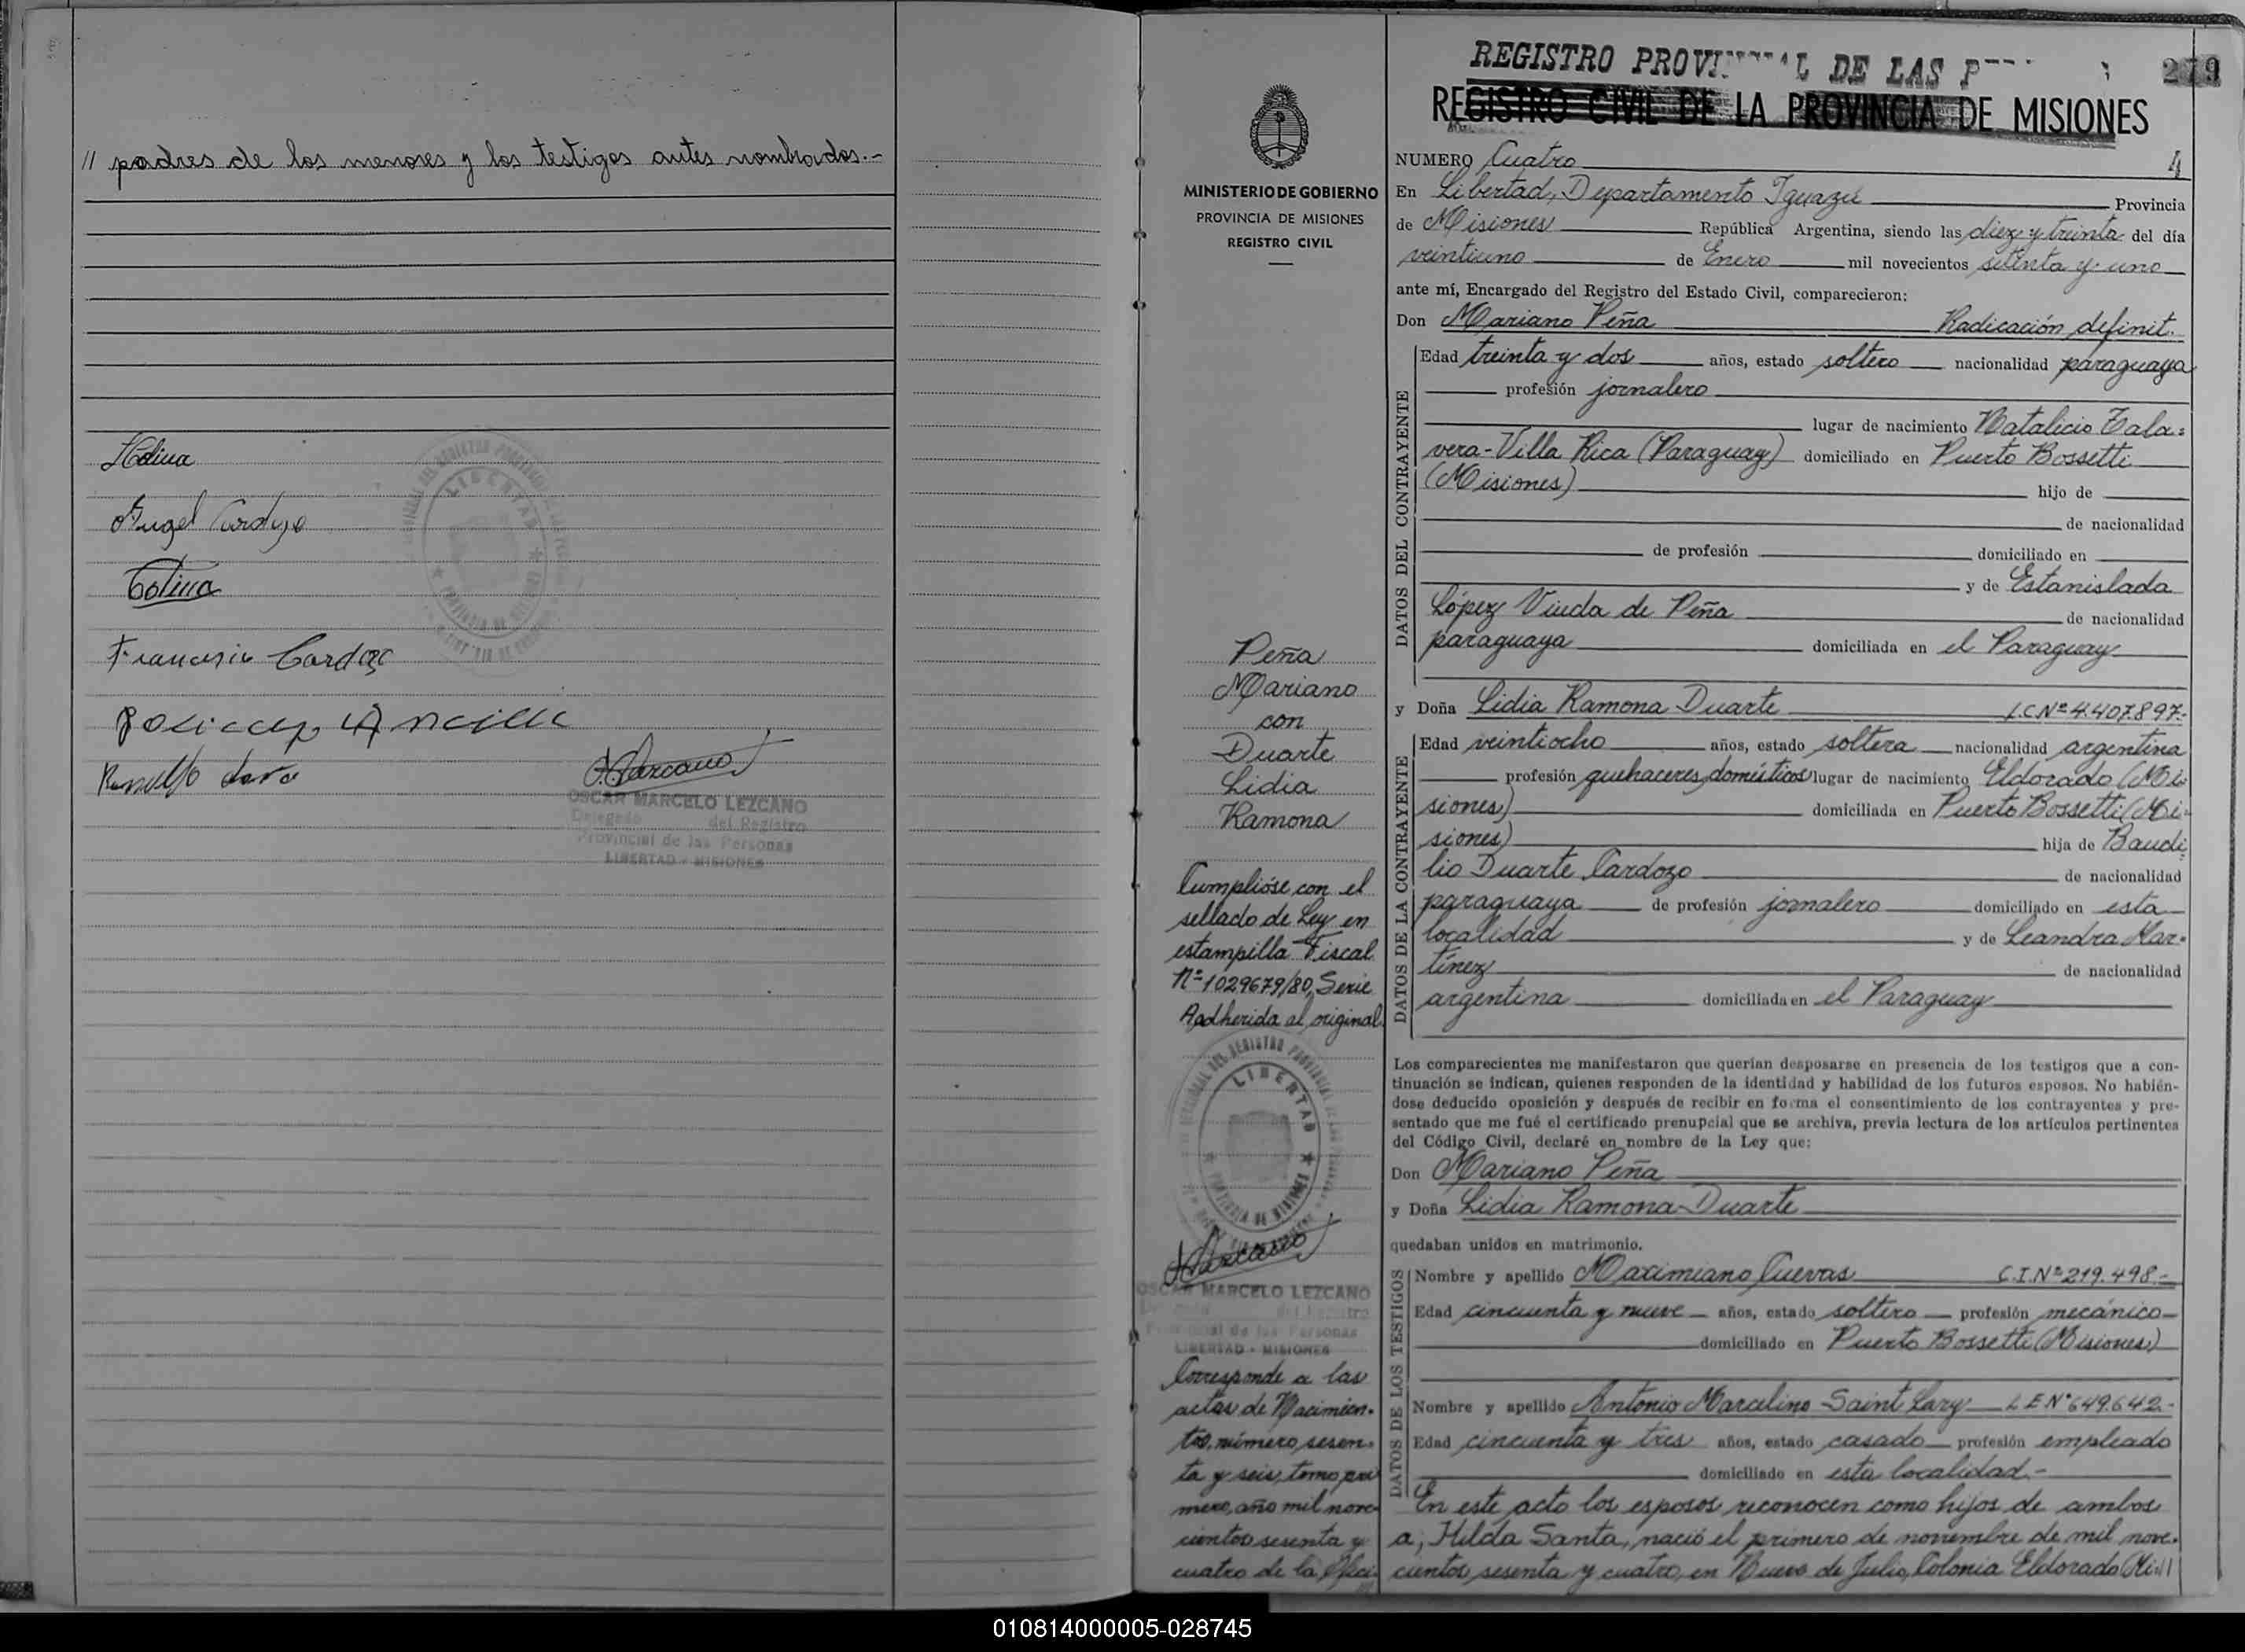 // padres de los menores y los testigos antes nombrados.-
Angel Cardozo
Francisco Cardozo
OSCAR MARCELO LEZCANO
Delegado del Registro
Provincial de las Personas
LIBERTAD - MISIONES
LIBERTAD
PROVINCIA DE MISIONES
MINISTERIO DE GOBIERNO
PROVINCIA DE MISIONES
REGISTRO CIVIL
Peña
Mariano
con
Duarte
Lidia
Ramona
Cumplióse con el
sellado de Ley en
estampilla Fiscal
Nº 1029679/80, Serie
Aadherida al original
LIBERTAD
PROVINCIA DE MISIONES
OSCAR MARCELO LEZCANO
del Registro
Provincial de las Personas
LIBERTAD - MISIONES
Corresponde a las
actas de Nacimien-
tos, número sesen-
ta y seis, tomo pri
mero, año mil nove-
cientos sesenta y
cuatro de la Ofici-
REGISTRO PROVINCIAL DE LAS
279
REGISTRO CIVIL DE LA PROVINCIA DE MISIONES
NUMERO Cuatro 4
En Libertad, Departamento Iguazú Provincia
de Misiones República Argentina, siendo las diez y treinta del día
veintiuno de Enero mil novecientos setenta y uno
ante mí, Encargado del Registro del Estado Civil, comparecieron:
Don Mariano Peña Radicación definit.
DATOS DEL CONTRAYENTE
Edad treinta y dos años, estado soltero nacionalidad paraguaya
profesión jornalero
lugar de nacimiento Natalicio Tala-
vera-Villa Rica (Paraguay) domiciliado en Puerto Bossetti
(Misiones) hijo de
de nacionalidad
de profesión domiciliado en
y de Estanislada
López Viuda de Peña de nacionalidad
paraguaya domiciliada en el Paraguay
y Doña Lidia Ramona Duarte L.C.Nº 4.407.897.-
DATOS DE LA CONTRAYENTE
Edad veintiocho años, estado soltera nacionalidad argentina
profesión quehaceres domésticos lugar de nacimiento Eldorado (Mi-
siones) domiciliada en Puerto Bossetti (Mi-
siones) hija de Baudi
lio Duarte Cardozo de nacionalidad
paraguaya de profesión jornalero domiciliado en esta
localidad y de Leandra Mar-
tínez de nacionalidad
argentina domiciliada en el Paraguay
Los comparecientes me manifestaron que querían desposarse en presencia de los testigos que a con-
tinuación se indican, quienes responden de la identidad y habilidad de los futuros esposos. No habién-
dose deducido oposición y después de recibir en forma el consentimiento de los contrayentes y pre-
sentado que me fué el certificado prenupcial que se archiva, previa lectura de los artículos pertinentes
del Código Civil, declaré en nombre de la Ley que:
Don Mariano Peña
y Doña Lidia Ramona Duarte
quedaban unidos en matrimonio.
DATOS DE LOS TESTIGOS
Nombre y apellido Maximiano Cuevas C.I.Nº 219.498.-
Edad cincuenta y nueve años, estado soltero profesión mecánico
domiciliado en Puerto Bossetti (Misiones)
Nombre y apellido Antonio Marcelino Saint Lary L.E.Nº 649.642.-
Edad cincuenta y tres años, estado casado profesión empleado
domiciliado en esta localidad.-
En este acto los esposos reconocen como hijos de ambos
a; Hilda Santa, nació el primero de noviembre de mil nove-
cientos sesenta y cuatro, en Nueve de Julio, Colonia Eldorado (Mi-//
010814000005-028745